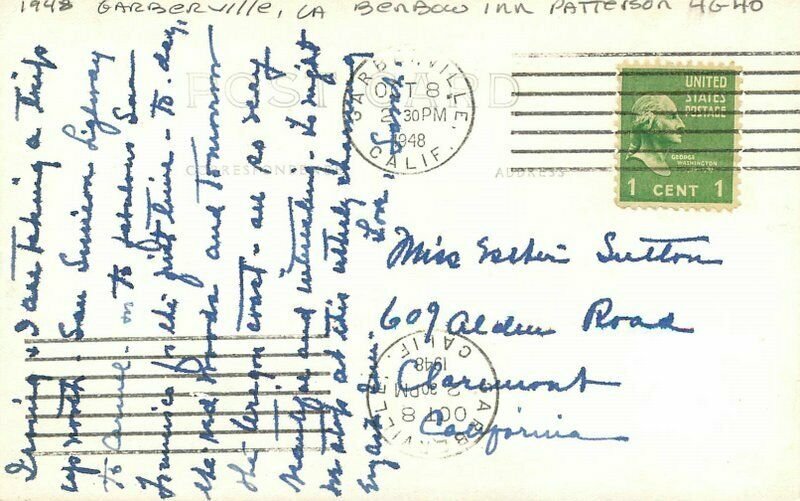 1948 GARBERVILLE, CA BENBOW INN PATTERSON 4G40
POST CARD
CORRESPONDENCE
ADDRESS
GARBERVILLE, CALIF.
OCT 8
2 30 PM
1948
UNITED
STATES
POSTAGE
GEORGE
WASHINGTON
1 CENT 1
Irving & I are taking a trip
up north - San Simeon Highway
to Carmel - on to fabulous San
Francisco for the first time - to-day,
the red woods and tomorrow
the Oregon coast - all so very
beautiful and interesting - to-night
we stop at this utterly charming
English Inn.
Love,
Miss Esther Sutton
609 Alden Road
Claremont
California
GARBERVILLE, CALIF.
OCT 8
2 30 PM
1948